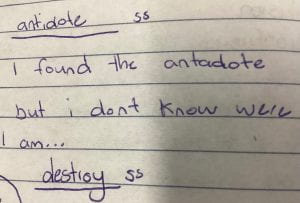 antidote ss
I found the antadote
but i dont know were
I am...
destroy ss